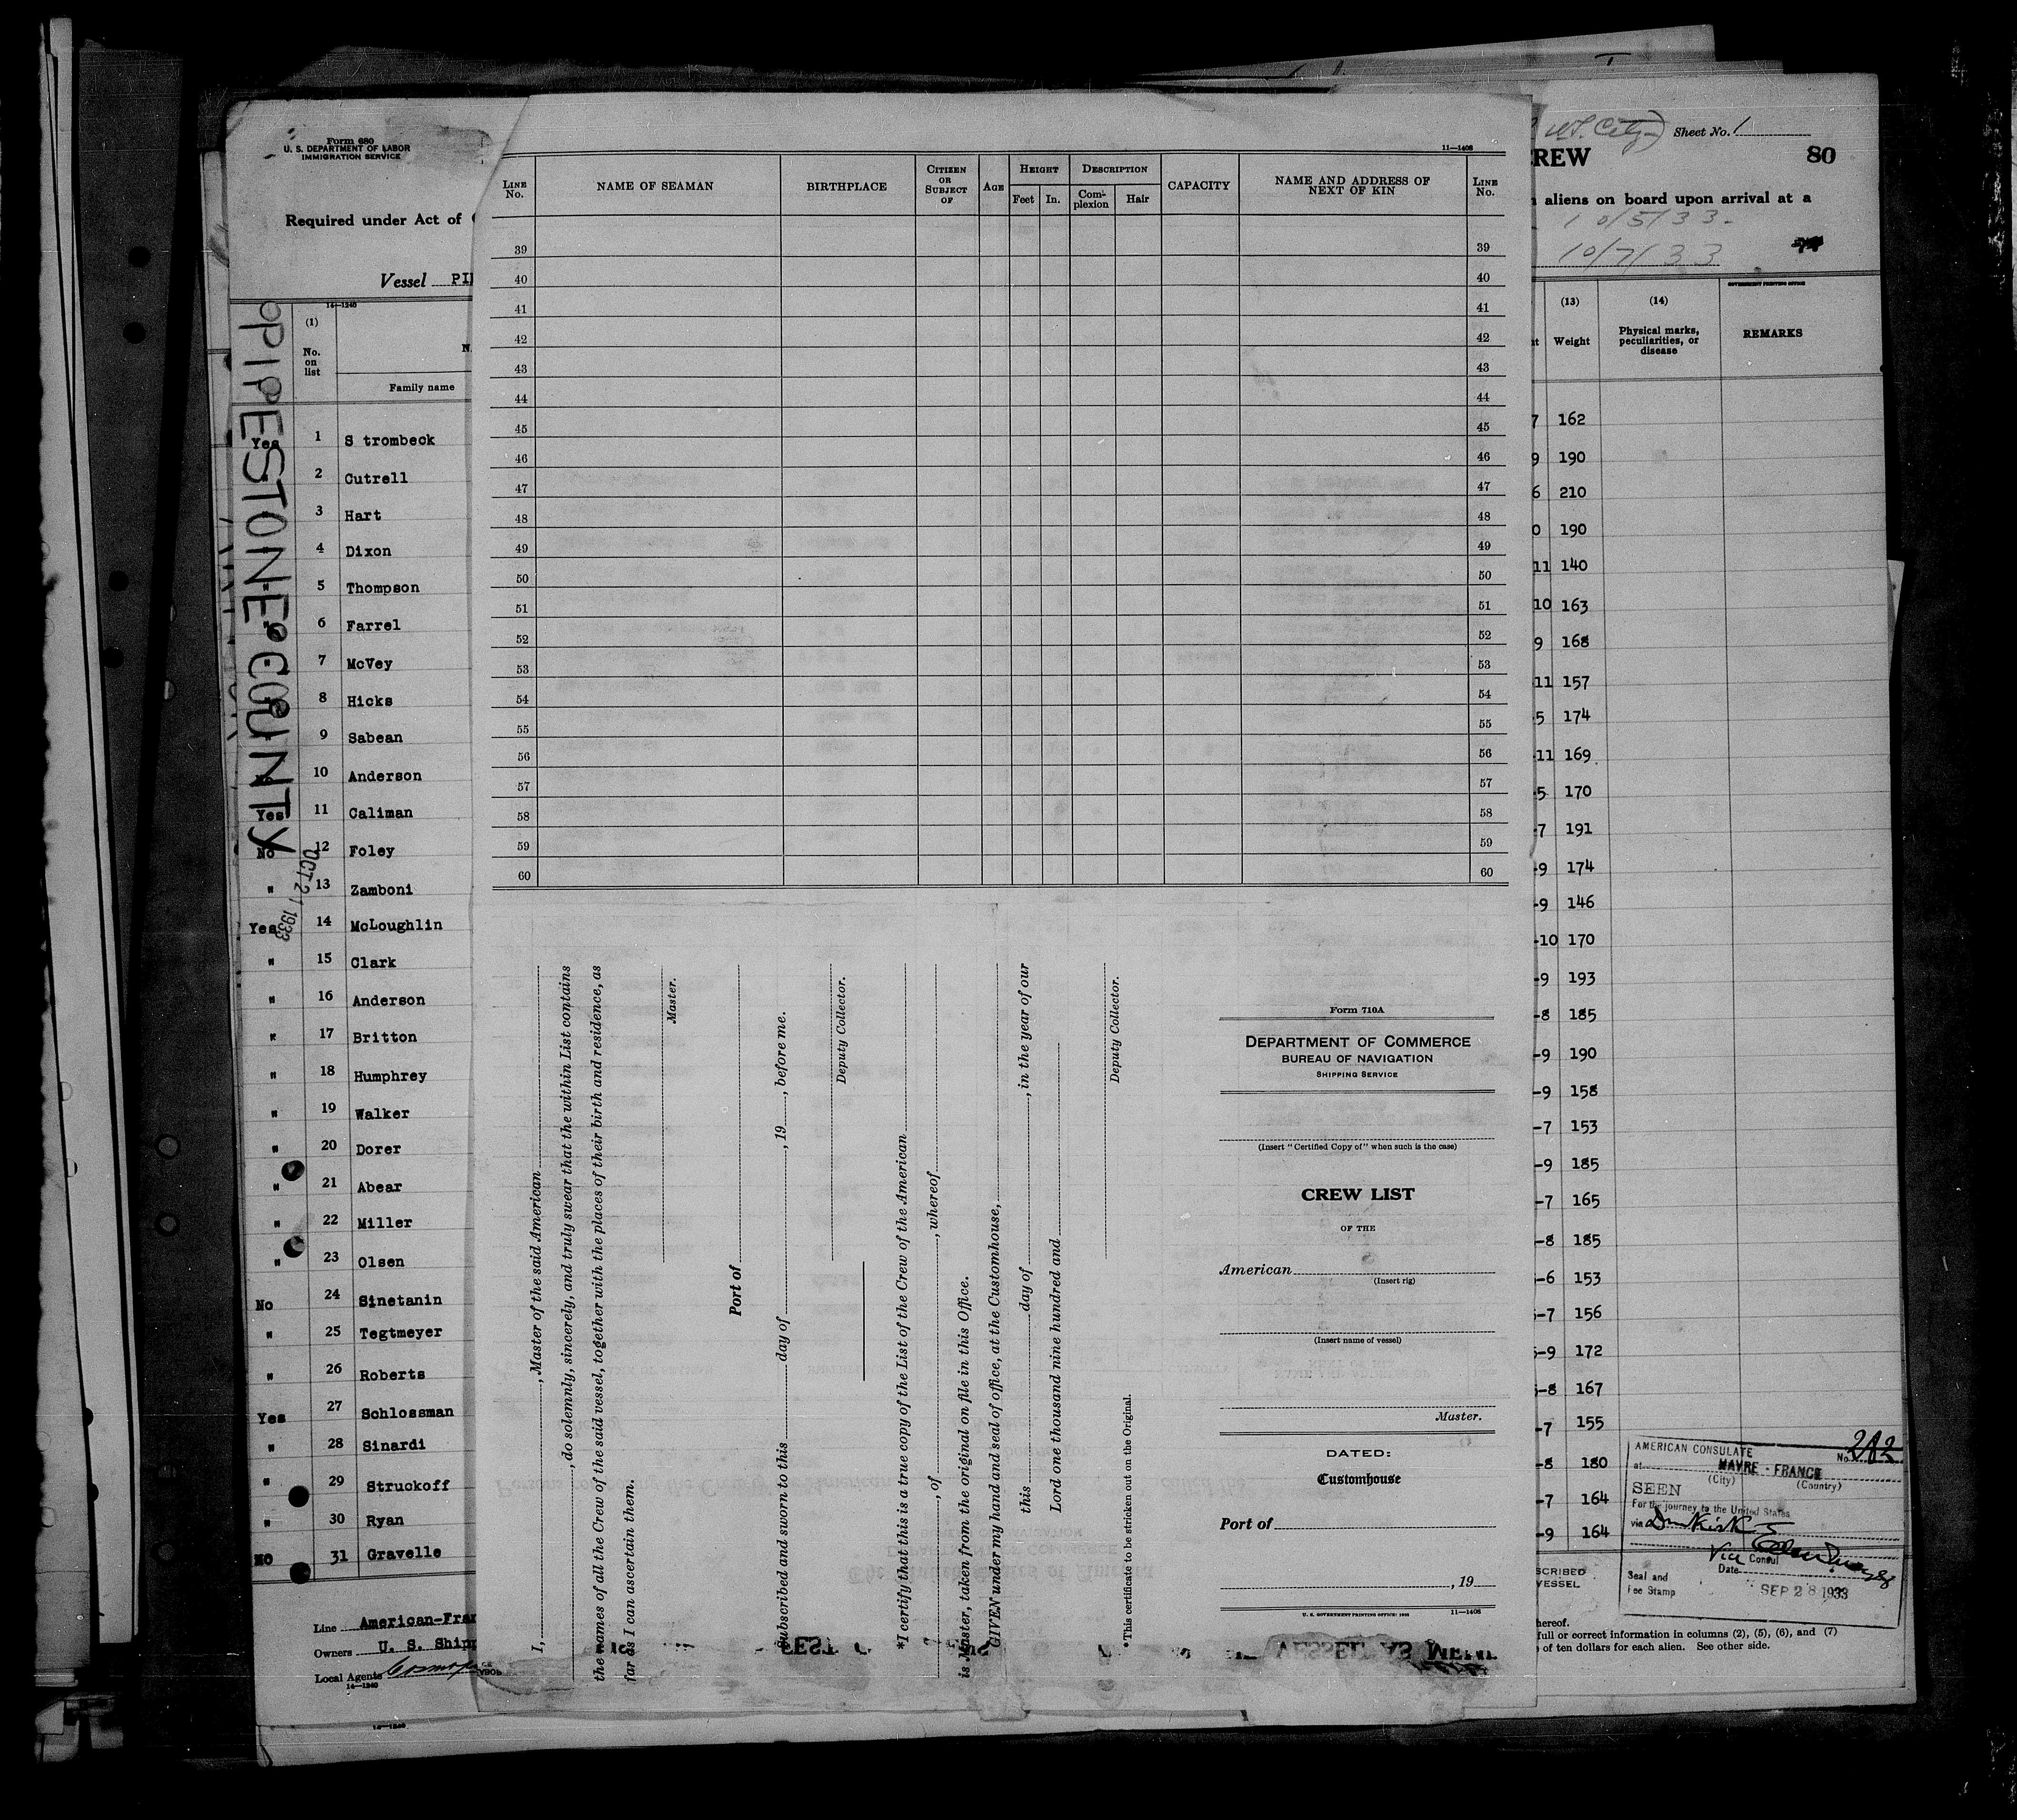 Form 680
U. S. DEPARTMENT OF LABOR
IMMIGRATION SERVICE
Required under Act of
Vessel PI
14—1240
(1)
No.
on
list
Family name
PIPESTONE COUNTY
OCT 21 1933
Yes 1 Strombeck
2 Cutrell
3 Hart
4 Dixon
5 Thompson
6 Farrel
7 McVey
8 Hicks
9 Sabean
10 Anderson
Yes 11 Caliman
No 12 Foley
" 13 Zamboni
Yes 14 McLoughlin
" 15 Clark
" 16 Anderson
" 17 Britton
" 18 Humphrey
" 19 Walker
" 20 Dorer
" 21 Abear
" 22 Miller
" 23 Olsen
No 24 Sinetanin
" 25 Tegtmeyer
" 26 Roberts
Yes 27 Schlossman
" 28 Sinardi
" 29 Struckoff
" 30 Ryan
NO 31 Gravelle
Line American-Fra
Owners U. S. Shipp
Local Agents
14—1240
11—1408
LINE No.
NAME OF SEAMAN
BIRTHPLACE
CITIZEN OR SUBJECT OF
AGE
HEIGHT
Feet In.
DESCRIPTION
Complexion Hair
CAPACITY
NAME AND ADDRESS OF NEXT OF KIN
LINE No.
39 39
40 40
41 41
42 42
43 43
44 44
45 45
46 46
47 47
48 48
49 49
50 50
51 51
52 52
53 53
54 54
55 55
56 56
57 57
58 58
59 59
60 60
I, , Master of the said American
, do solemnly, sincerely, and truly swear that the within List contains
the names of all the Crew of the said vessel, together with the places of their birth and residence, as
far as I can ascertain them.
Master.
Port of
Subscribed and sworn to this day of , 19 , before me.
Deputy Collector.
*I certify that this is a true copy of the List of the Crew of the American
, of , whereof
is Master, taken from the original on file in this Office.
GIVEN under my hand and seal of office, at the Customhouse,
this day of , in the year of our
Lord one thousand nine hundred and
Deputy Collector.
*This certificate to be stricken out on the Original.
Form 710A
DEPARTMENT OF COMMERCE
BUREAU OF NAVIGATION
SHIPPING SERVICE
(Insert "Certified Copy of" when such is the case)
CREW LIST
OF THE
American
(Insert rig)
(Insert name of vessel)
Master.
DATED:
Customhouse
Port of
, 19
U. S. GOVERNMENT PRINTING OFFICE: 1933 11—1408
Sheet No. 1
REW
80
aliens on board upon arrival at a
10/5/33
10/7/33
GOVERNMENT PRINTING OFFICE
(13)
Weight
(14)
Physical marks, peculiarities, or disease
REMARKS
7 162
9 190
6 210
0 190
11 140
10 163
9 168
11 157
5 174
-11 169
-5 170
-7 191
-9 174
-9 146
-10 170
-9 193
-8 185
-9 190
-9 158
-7 153
-9 185
-7 165
-8 185
-6 153
-7 156
-9 172
-8 167
-7 155
-8 180
-7 164
-9 164
AMERICAN CONSULATE
No. 282
at HAVRE - FRANCE
(City) (Country)
SEEN
For the journey to the United States
via Dunkirk
Vice Consul
Date SEP 28 1933
Seal and
Fee Stamp
SCRIBED
VESSEL
hereof.
full or correct information in columns (2), (5), (6), and (7)
of ten dollars for each alien. See other side.